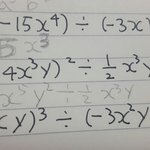 -15x⁴) ÷ (-3x
5 x³
4x³y)² ÷ ½ x³y
x⁵ y² ÷ ½ x³y
x y)³ ÷ (-3x²y